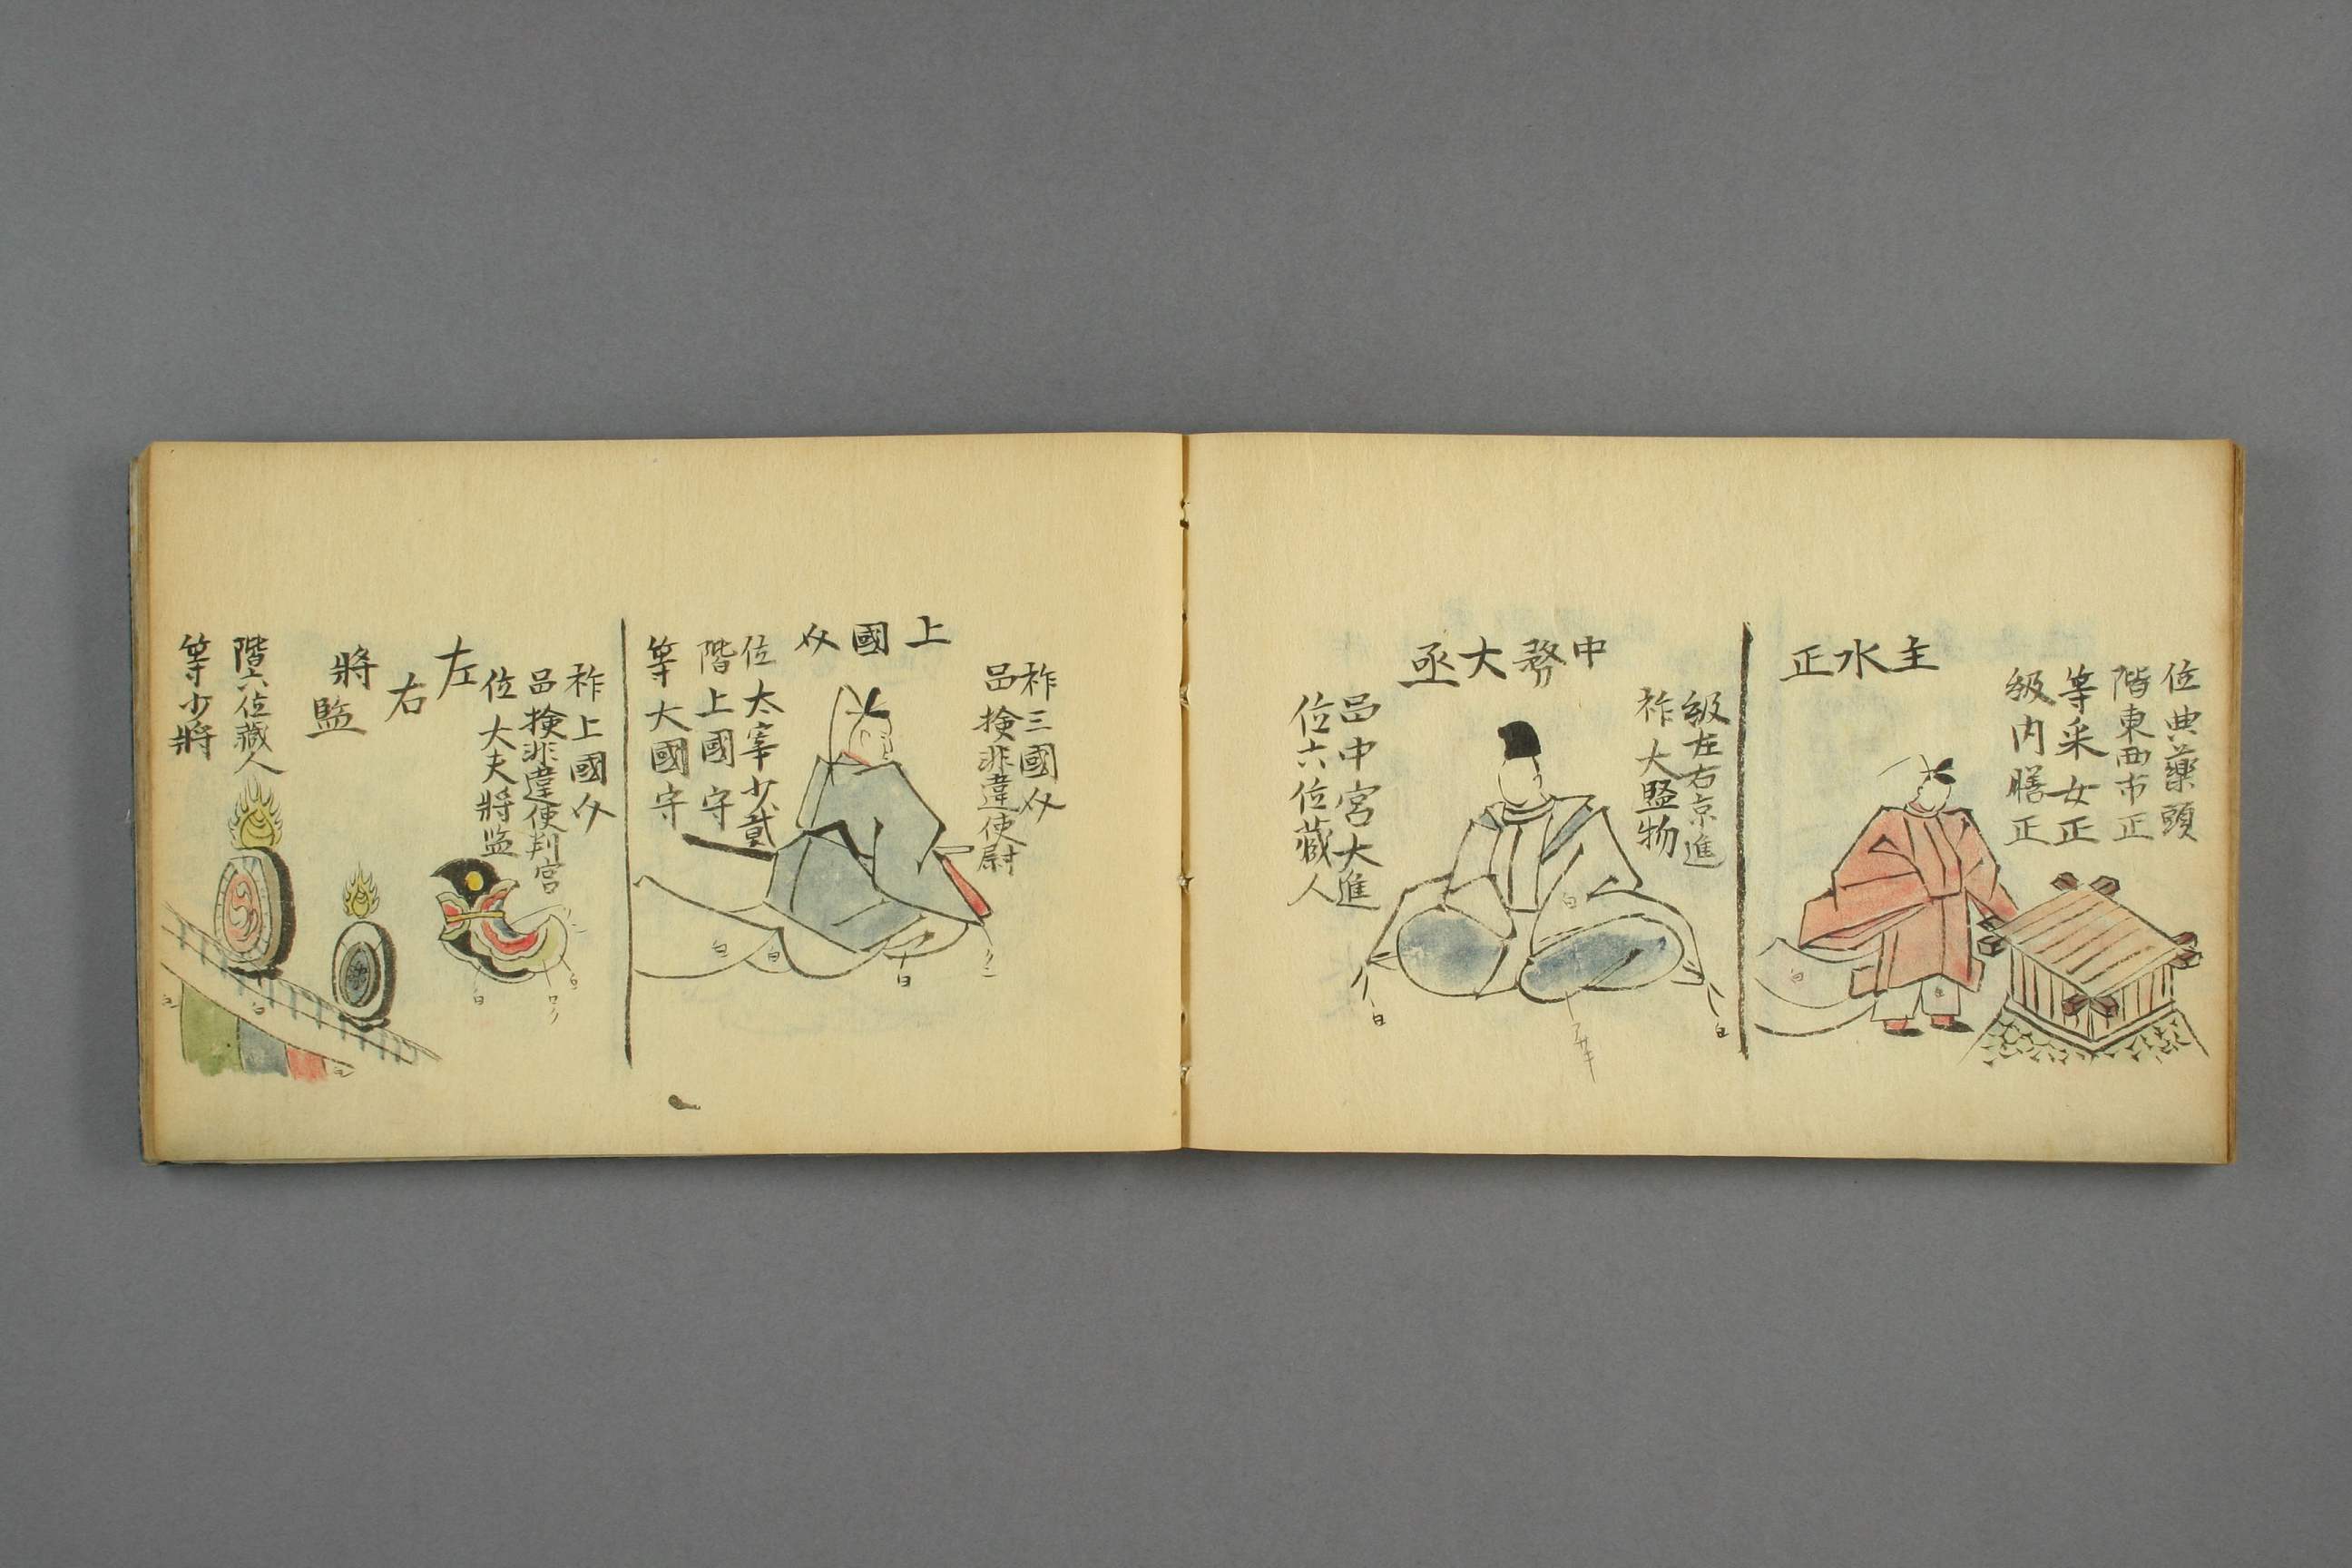 位典藥頭
階東西市正
等采女正
級内膳正
主水正
白
白
級左右京進
祚大監物
中務大丞
品中宮大進
位六位藏人
白
白
白
祚三國介
品検非違使尉
上國介
位太宰少貳
階上國守
等大國守
白
白
白
祚上國介
品検非違使判官
位大夫將監
左
右
將
監
階六位藏人
等少將
白
白
白